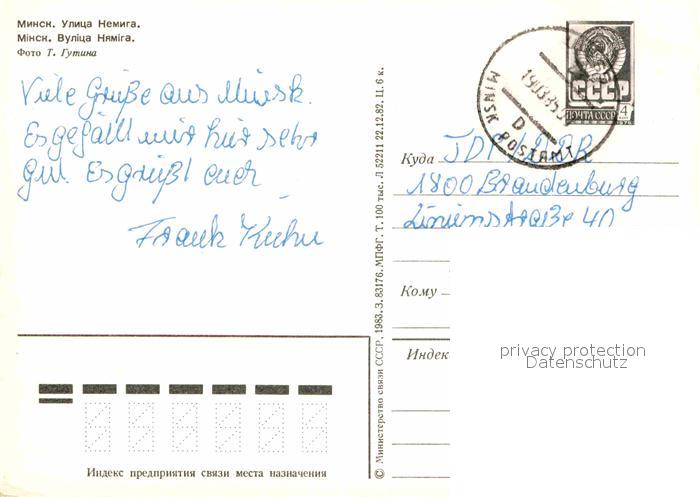 Минск. Улица Немига.
Мінск. Вуліца Няміга.
Фото Т. Гутина
Viele Grüße aus Minsk.
Es gefällt mir hier sehr
gut. Es grüßt euch
Frank Kuhn
© Министерство связи СССР. 1983. З. 83176. МПФГ. Т. 100 тыс. Л 52211 22.12.82. Ц. 6 к.
MINSK POSTAMT
D
СССР
ПОЧТА СССР 4
Куда
1800 Brandenburg
Linienstraße 40
Кому
Индек
privacy protection
Datenschutz
Индекс предприятия связи места назначения